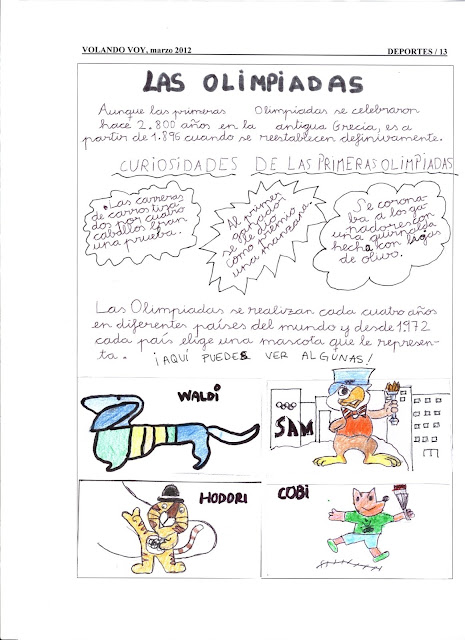 VOLANDO VOY, marzo 2012 DEPORTES / 13
LAS OLIMPIADAS
Aunque las primeras Olimpiadas se celebraron
hace 2.800 años en la antigua Grecia, es a
partir de 1.896 cuando se reestablecen definitivamente.
CURIOSIDADES DE LAS PRIMERAS OLIMPIADAS
• Las carreras
de carros tira
dos por cuatro
caballos eran
una prueba.
Al primer
ganador
se le dio
como premio
una manzana
Se corona-
ba a los ga-
nadores con
una guirnalda
hecha con hojas
de olivo.
Las Olimpiadas se realizan cada cuatro años
en diferentes países del mundo y desde 1972
cada país elige una mascota que le represen-
ta. ¡AQUÍ PUEDES VER ALGUNAS!
WALDI
SAM
HODORI
COBI